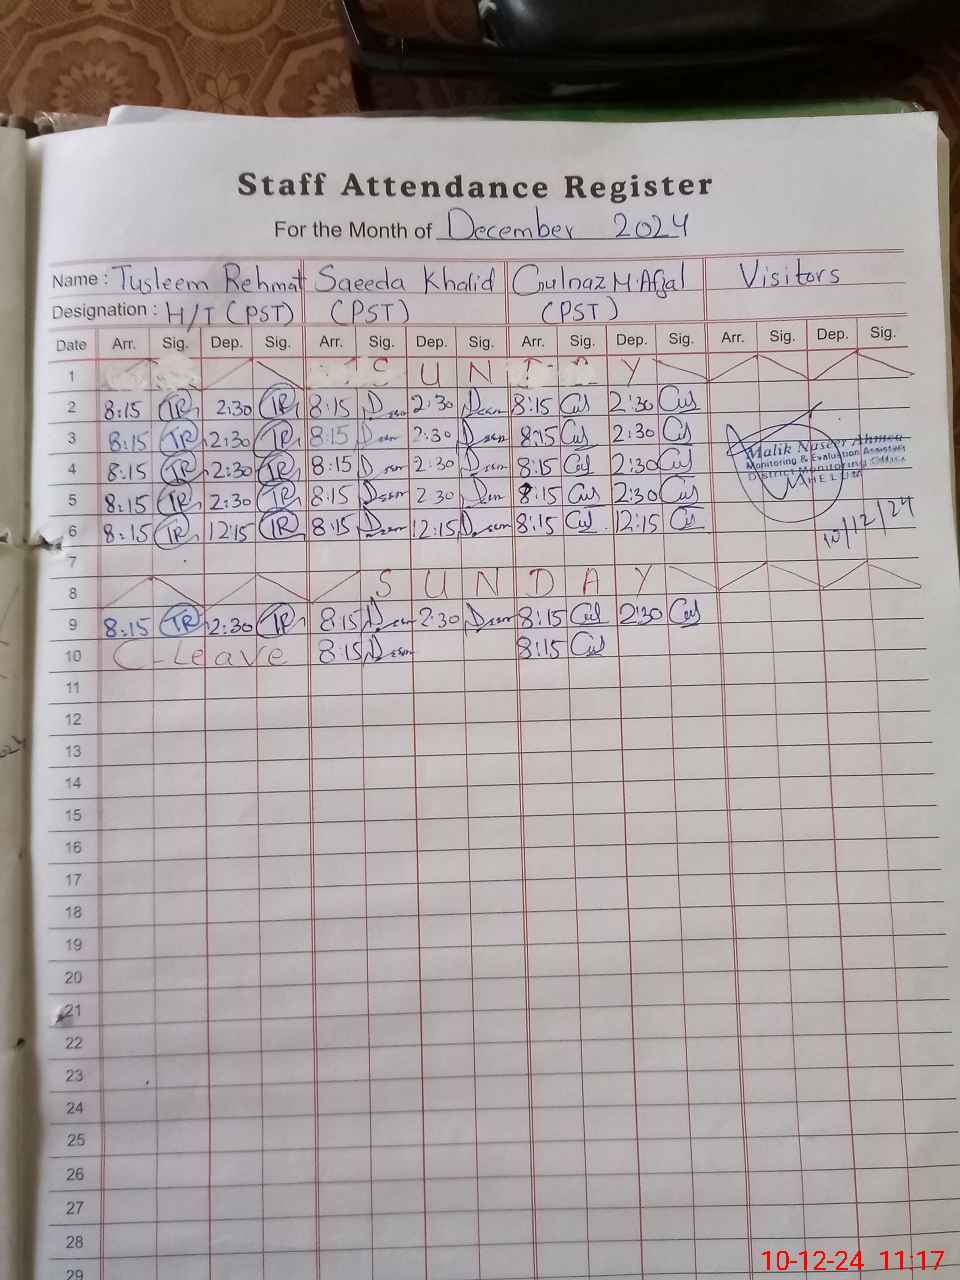 Staff Attendance Register
For the Month of December 2024
Name : Tusleem Rehmat Saeeda Khalid Gulnaz M.Afzal Visitors
Designation : H/T (PST) (PST) (PST)
Date Arr. Sig. Dep. Sig. Arr. Sig. Dep. Sig. Arr. Sig. Dep. Sig. Arr. Sig. Dep. Sig.
1 S U N D A Y
2 8:15 TR 2:30 TR 8:15 2:30 8:15 2:30
3 8:15 TR 2:30 TR 8:15 2:30 8:15 2:30
4 8:15 TR 2:30 TR 8:15 2:30 8:15 2:30
5 8:15 TR 2:30 TR 8:15 2:30 8:15 2:30
6 8:15 TR 12:15 TR 8:15 12:15 8:15 12:15
Malik Naseer Ahmed
Monitoring & Evaluation Assistant
District Monitoring Office
JHELUM
10/12/24
7
8 S U N D A Y
9 8:15 TR 2:30 TR 8:15 2:30 8:15 2:30
10 C-Leave 8:15 8:15
11
12
13
14
15
16
17
18
19
20
21
22
23
24
25
26
27
28
29
10-12-24 11:17